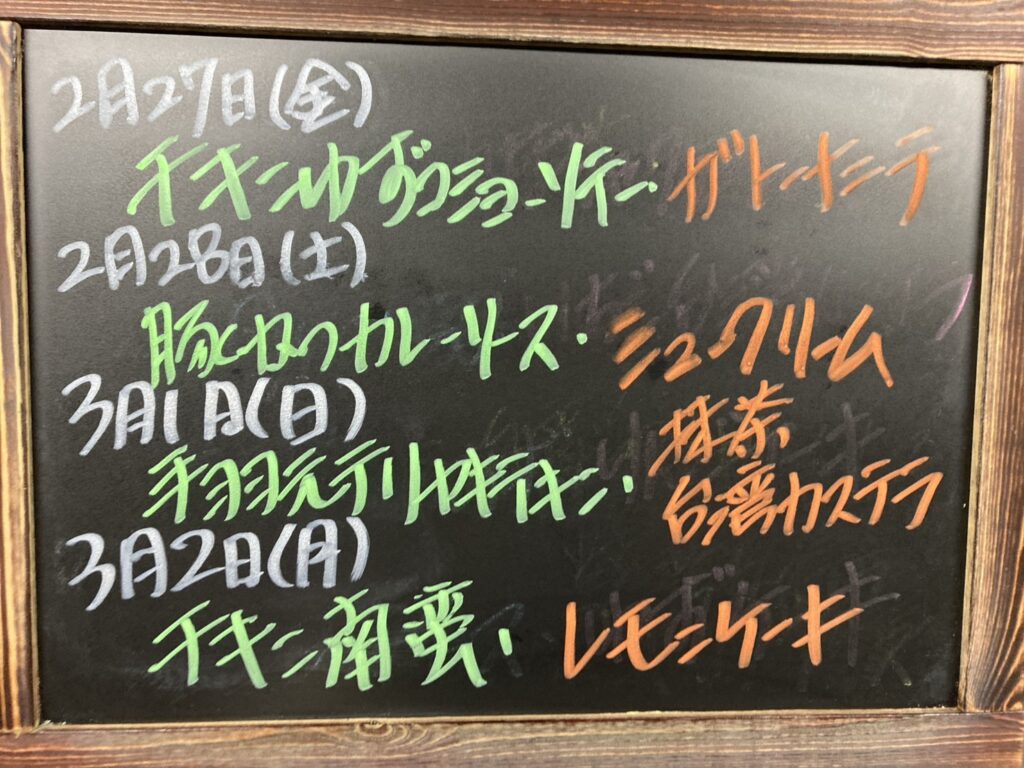 2月27日(金)
チキンゆずコショーソテー・ガトーナニラ
2月28日(土)
豚ヒレカツカレーソース・シュークリーム
3月1日(日)
チョコ元テリヤキチキン・抹茶
台湾カステラ
3月2日(月)
チキン南蛮・レモンケーキ